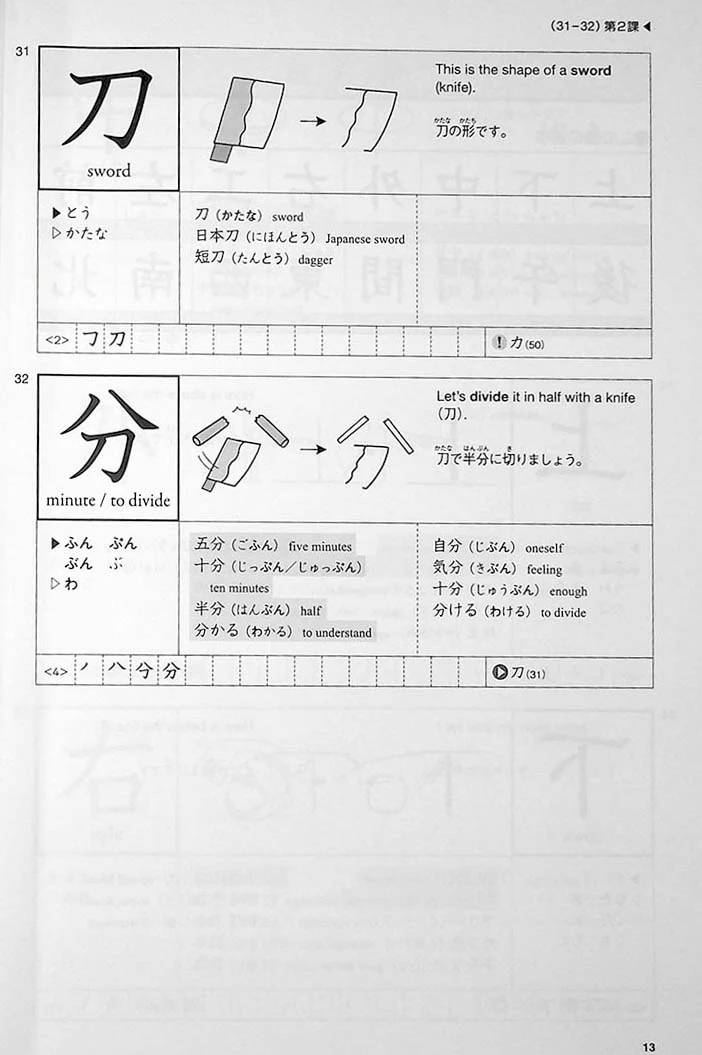 (31-32) 第2課◀
31
刀
sword
This is the shape of a sword
(knife).
かたな かたち
刀の形です。
▶とう
▷かたな
刀（かたな） sword
日本刀（にほんとう） Japanese sword
短刀（たんとう） dagger
<2> フ 刀
! 力(50)
32
分
minute / to divide
Let's divide it in half with a knife
（刀）.
かたな はんぶん き
刀で半分に切りましょう。
▶ふん ぷん
ぶん ぶ
▷わ
五分（ごふん） five minutes
十分（じっぷん／じゅっぷん）
ten minutes
半分（はんぶん） half
分かる（わかる） to understand
自分（じぶん） oneself
気分（きぶん） feeling
十分（じゅうぶん） enough
分ける（わける） to divide
<4> ノ 八 分 分
▶刀(31)
13